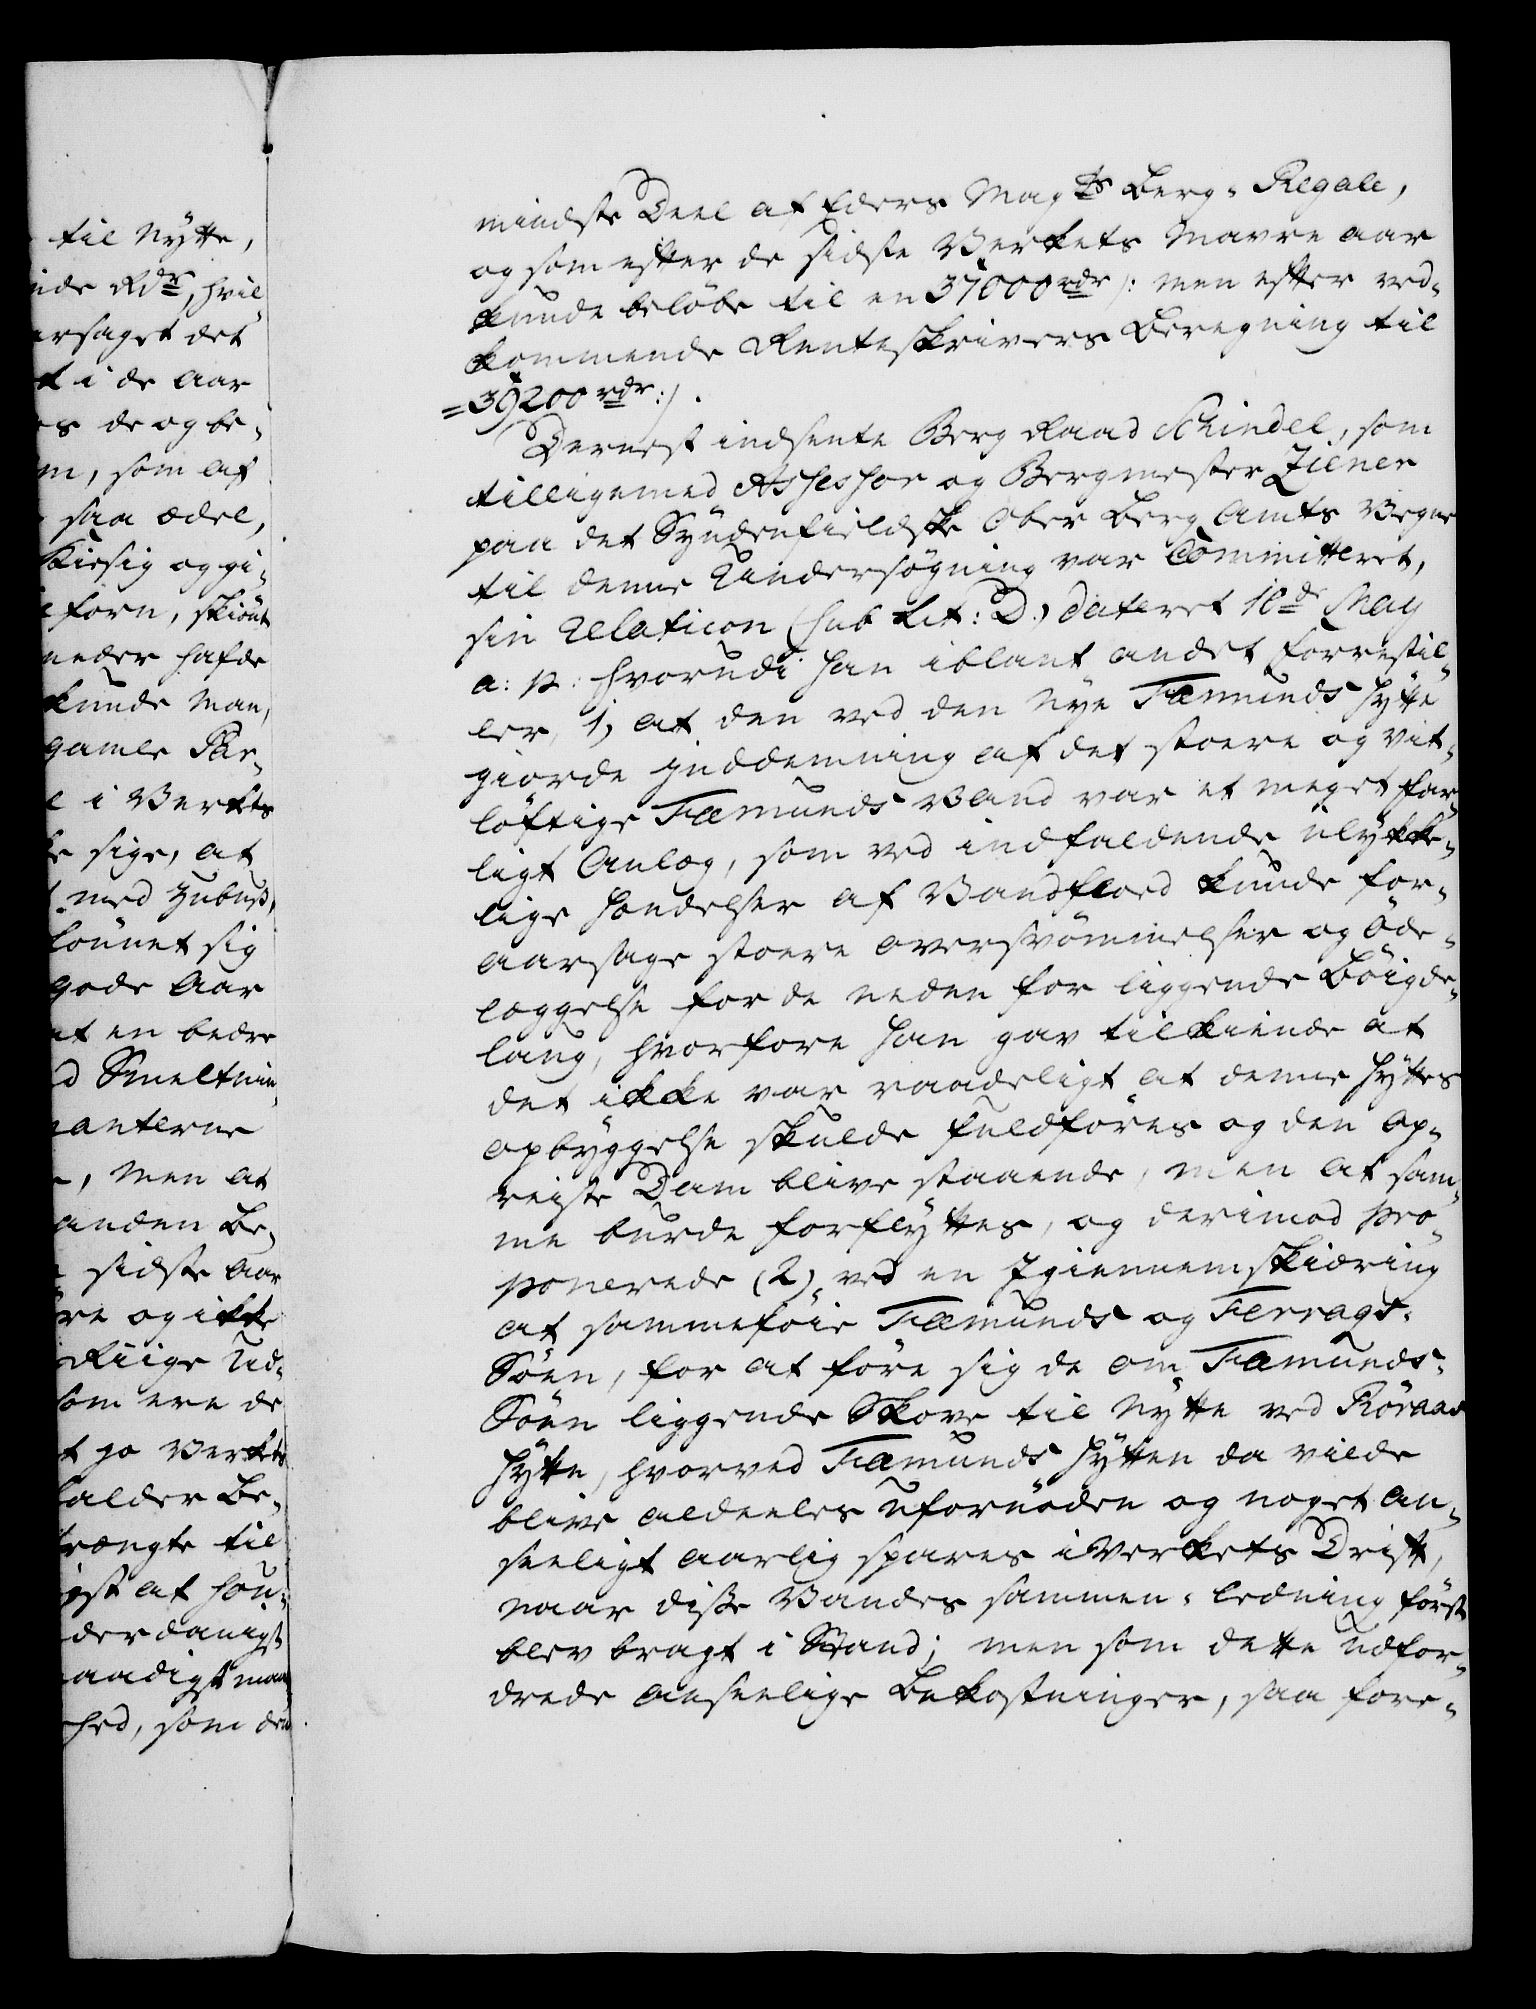 til Nÿtte,
nde Rdr, hvil
arsaget det
t i de Aar
es de og be-
m, som af
saa ædel,
Kiesig og gi-
forn, skiönt
neder hafde
kunde man,
gamle Par-
e i Verkets
e sige, at
med Zubus,
lönnet sig
gode Aar
at en bedre
d Smeltnin
anterne
, men at
anden Be-
sidste Aar
re og ikke
Riige Ud-
som ere de
t jo Verkets
alder Be-
trængte til
igst at hen-
derdanigst
aadigst maa
hed, som den
mindste Deel af Eders Mag:ts Berg-Regale,
og som efter de sidste Verkets Mavre Aar
kunde beløbe til en 37000 rdr /: men efter ved-
kommende Renteskrivers Beregning til
=39200 rdr:/.
Dernest indsente Berg Raad Schindel, som
tilligemed Assessor og Bergmester Ziener
paa det Syndenfieldske Ober Berg Amts Vegne
til denne Undersögning var Committeret,
sin Relation (sub Lit: D.) dateret 10de May
a: p: hvorudi han iblant andet forrestil-
ler, 1) at den ved den nye Fæmunds Hytte
giorde Inddemning af det stoere og vit-
löftige Fæmunds Vand var et meget far-
ligt Anlæg, som ved indfaldende ulykke-
lige Hændelser af Vandfloed kunde for-
aarsage stoere Oversvömmelser og Öde-
læggelse for de neden for liggende Böigde-
laug, hvorfore han gav tilkiende at
det ikke var raadeligt at denne Hyttes
opbyggelse skulde fuldföres og den op-
reiste Dam blive staaende, men at sam-
me burde forflyttes, og derimod pro-
ponerede (2), ved en Igiennemskiæring
at sammeföie Fæmunds og Ferrags-
Söen, for at före sig de om Fæmunds-
Söen liggende Skove til Nytte ved Röraas
Hytte, hvorved Fæmunds Hytten da vilde
blive aldeeles ufornöden og noget an-
seeligt aarlig spares i Verkets Drift,
naar disse Vandes sammen-ledning först
blev bragt i Stand; men som dette udfor-
drede anseelige Bekostninger, saa fore-